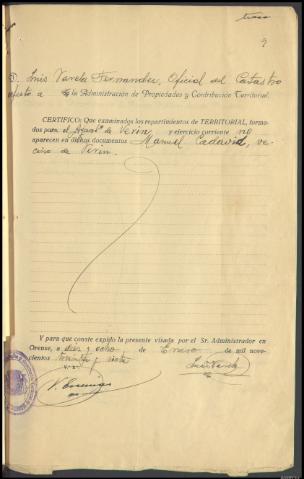 9
D. Luis Varela Fernandez, Oficial del Catastro
afecto a la Administración de Propiedades y Contribución Territorial.
CERTIFICO: Que examinados los repartimientos de TERRITORIAL, forma-
dos para el Ayunt.º de Verín y ejercicio corriente no
aparecen en dichos documentos Manuel Cadavid, ve-
cino de Verín.
Y para que conste expido la presente visada por el Sr. Administrador en
Orense, a diez y ocho de Enero de mil nove-
cientos treinta y siete
Luis Varela